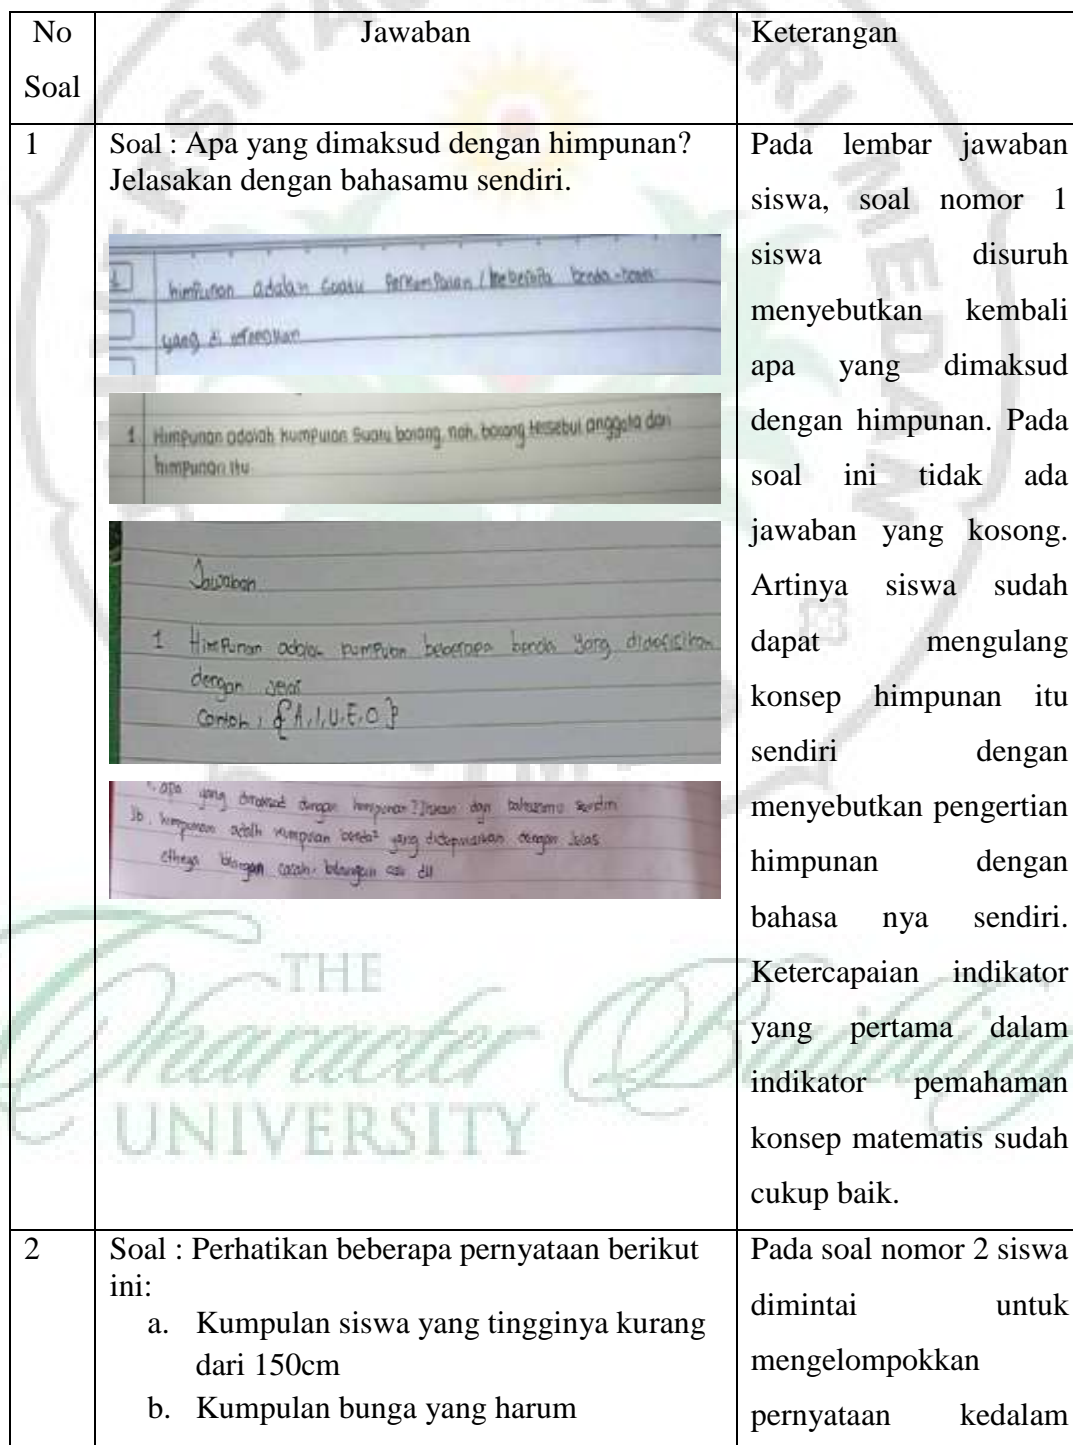 No
Soal
Jawaban
Keterangan
1
Soal : Apa yang dimaksud dengan himpunan?
Jelasakan dengan bahasamu sendiri.
1 himpunan adalah suatu perkumpulan / beberapa benda-benda
yang di
1 Himpunan adalah kumpulan suatu barang, nah, barang tersebut anggota dari
himpunan itu
Jawaban
1 Himpunan adalah kumpulan beberapa benda yang didefisikan
dengan jelas
Contoh : {A, I, U, E, O}
1. apa yang dimaksud dengan himpunan? dgn bahasamu sendiri
Jb. himpunan adlh kumpulan benda² yang dengan jelas
bilangan cacah, bilangan asli dll
Pada lembar jawaban
siswa, soal nomor 1
siswa disuruh
menyebutkan kembali
apa yang dimaksud
dengan himpunan. Pada
soal ini tidak ada
jawaban yang kosong.
Artinya siswa sudah
dapat mengulang
konsep himpunan itu
sendiri dengan
menyebutkan pengertian
himpunan dengan
bahasa nya sendiri.
Ketercapaian indikator
yang pertama dalam
indikator pemahaman
konsep matematis sudah
cukup baik.
2
Soal : Perhatikan beberapa pernyataan berikut
ini:
a. Kumpulan siswa yang tingginya kurang
dari 150cm
b. Kumpulan bunga yang harum
Pada soal nomor 2 siswa
dimintai untuk
mengelompokkan
pernyataan kedalam
THE
Character Building
UNIVERSITY